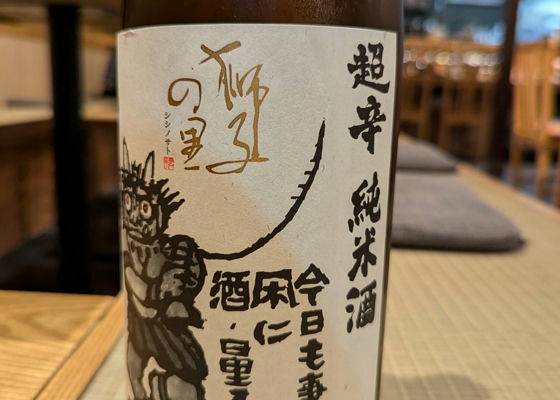 超辛 純米酒
獅子
の里
シシノサト
今日も妻
に
酒、量